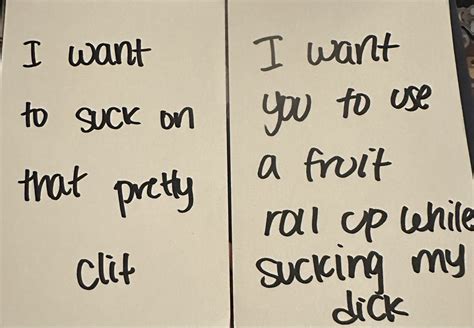 I want
to suck on
that pretty
clit
I want
you to use
a fruit
roll up while
sucking my
dick